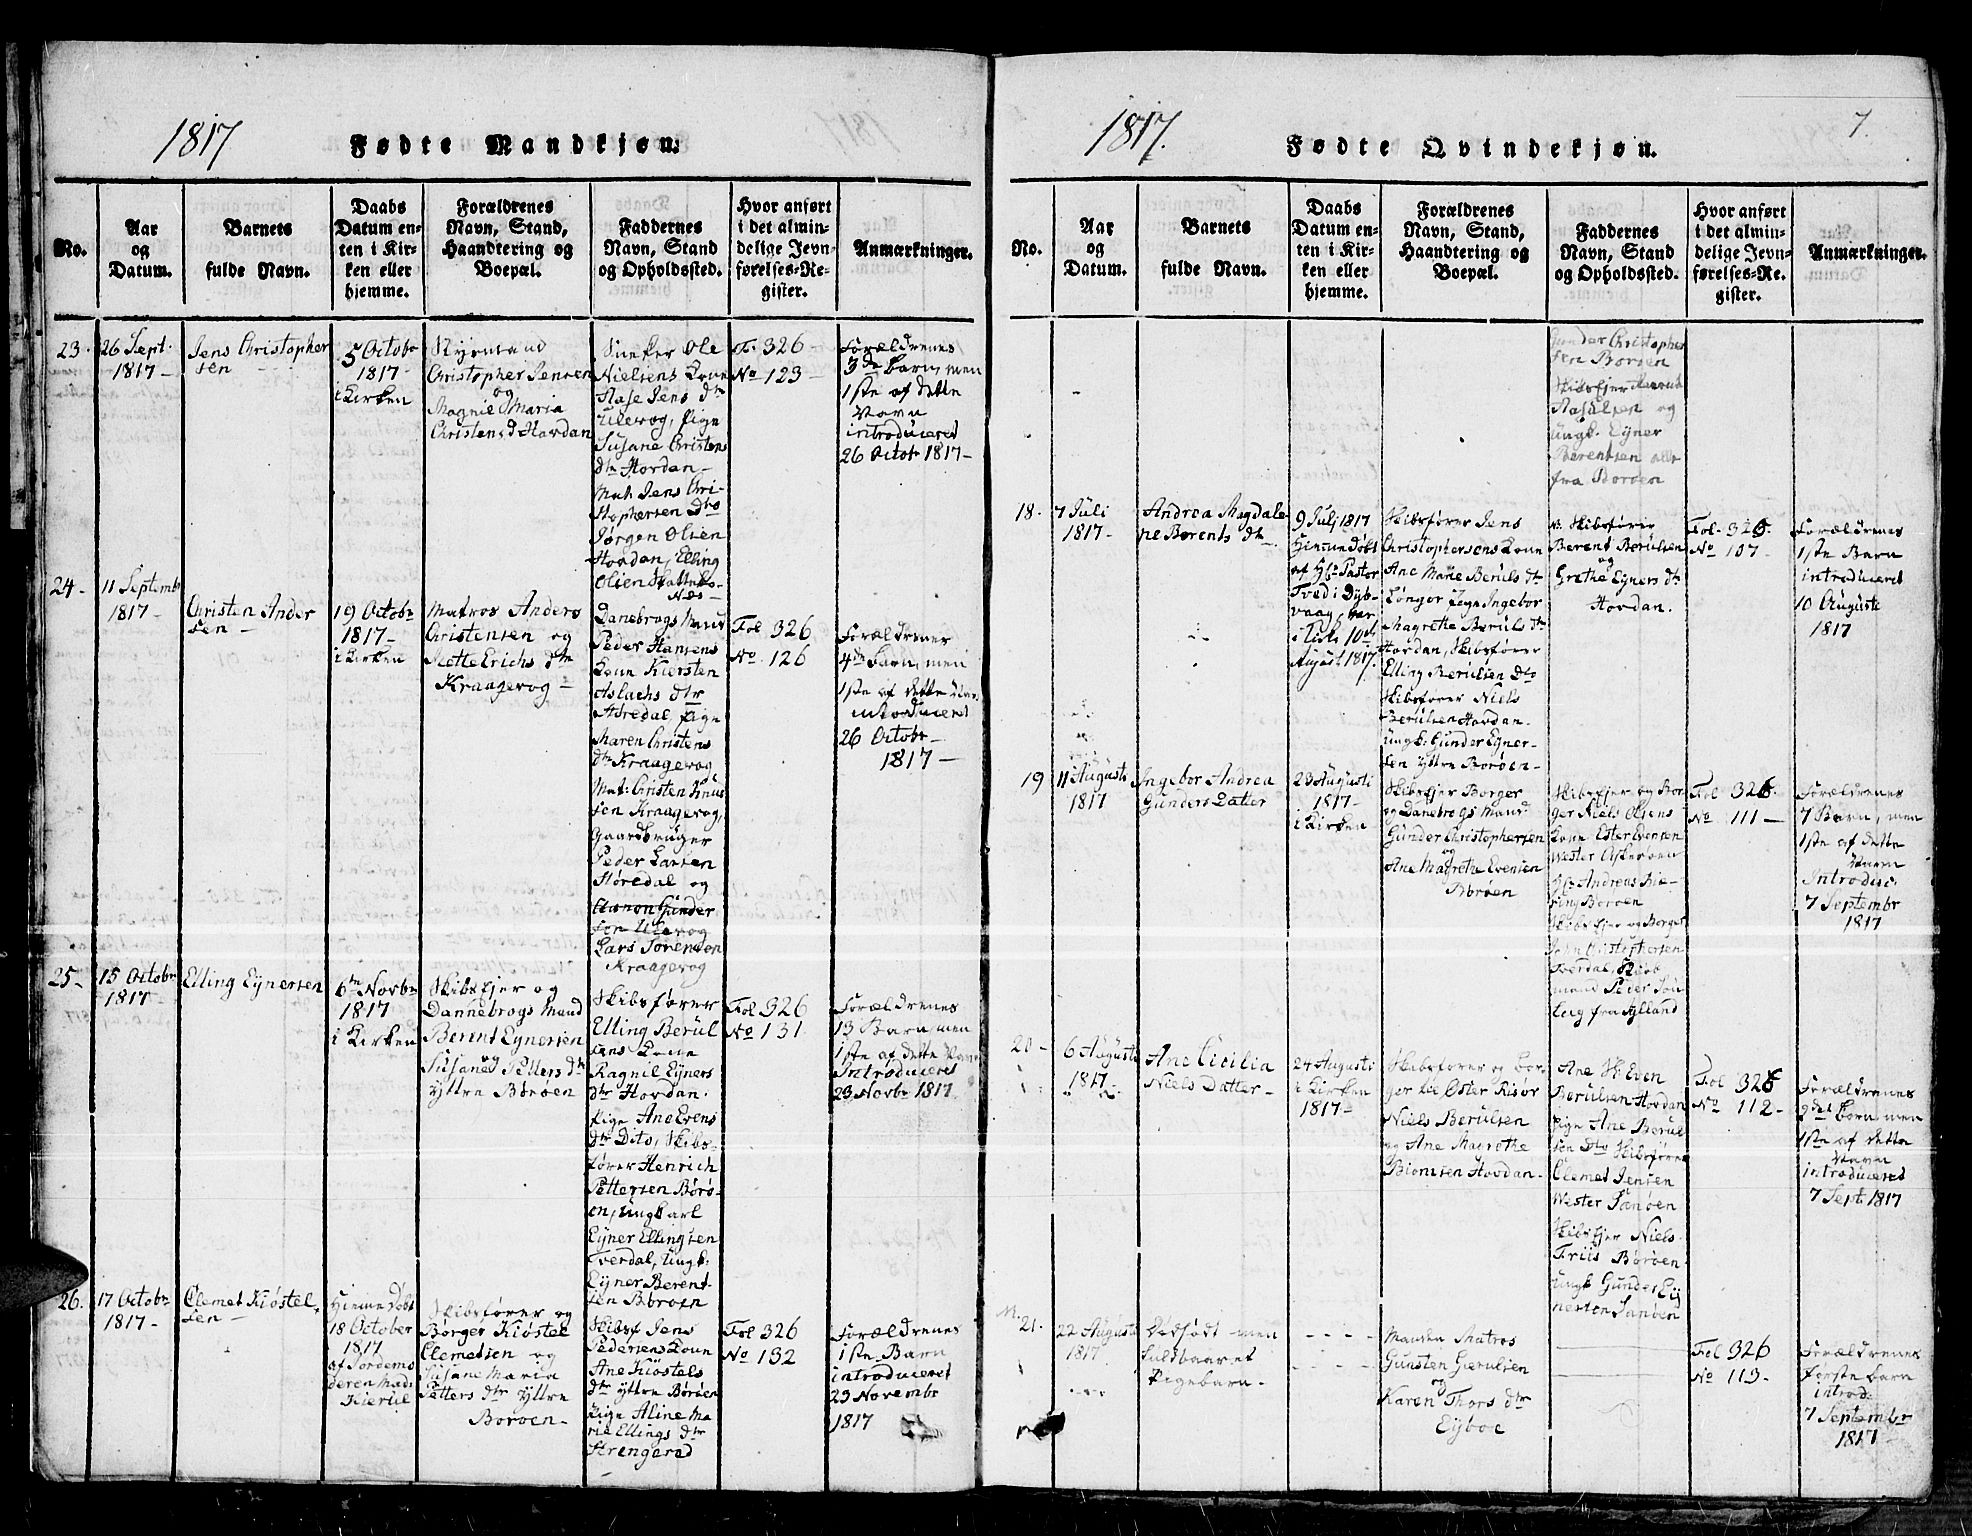 1817
Fødte Mandkjøn.
No.
Aar
og
Datum.
Barnets
fulde Navn.
Daabs
Datum en-
ten i Kir-
ken eller
hjemme.
Forældrenes
Navn, Stand,
Haandtering og
Boepæl.
Faddernes
Navn, Stand
og Opholdssted.
Hvor anført
i det almin-
delige Jevn-
førelses-Re-
gister.
Anmærkninger.
23.
26 Sept.
1817
Jens Christopher
sen
5 Octobr
1817
i Kirken
Styrmand
Christopher Jensen
og
Magnil Maria
Christens d Hovdan
Sneker Ole
Nielsens Kone
Aase Jens dtr
Ulevog, Pige
Susane Christens
dtr Hovdan
Mat. Jens Chri-
stophersen dto
Jørgen Olsen
Hovdan, Elling
Olsen
F. 326
No 123
Forældrenes
3de barn, men
1ste af dette
Navn
introduceret
26 Octobr 1817
24
11 Septembr
1817
Christen Ander
sen
19 Octobr
1817
i Kirken
Matros Anders
Christensen og
Erichs dtr
Kraagevog
Danebrogs Mand
Peder Hansens
Kone Kiersten
Aslachs dtr
Pige
Maren Christens
dtr Kraagevog
Mat: Christen Knud
sen Kraagevog,
Gaardbruger
Peder Larsen
og
Aanon Gunder
sen Ulevog
Lars Sørensen
Kraagevog
Fol 326
No. 126
Forældrenes
4de barn, men
1ste af dette Nav
introduceret
26 Octobr
1817
25
15 Octobr
1817
Elling Eynersen
6te Novbr
1817
i Kirken
Skibsejer og
Dannebrogs Mand
Berent Eynersen
og
Susane Petters dtr
Yttre Børøen
Skibsfører
Elling Berul
sens Kone
Ragnil Eyners
dtr Hovdan.
Pige Ane Evens
dtr Dito, Skibs-
fører Henrich
Pettersen Børø-
en, Ungkarl
Eyner Ellingsen
Tverdal, Ungk.
Eyner Berent-
sen Børøen
Fol 326
No 131
Forældrenes
13 Barn, men
1ste af dette Navn
Introduceret
23 Novbr 1817
26.
17 Octobr
1817
Clemet Kiøstel
sen
Hiemme Døbt
18 October
1817
af Jordemo
deren Mad.
Skibsfører og
Børger Kiøstel
Clemetsen og
Susane Maria
Petters dtr Yttre
Børøen
Skibsf Jens
Pedersens Kone
Ane Kiøstels
dtr Yttre Børøen
Pige Aline Ma
rie Ellings dtr
Strengerød
Fol 326
No 132
Forældrenes
1ste Barn
introduceret
23 Novembr
1817
1817.
Fødte Qvindekjøn.
7.
No.
Aar
og
Datum.
Barnets
fulde Navn.
Daabs
Datum en-
ten i Kir-
ken eller
hjemme.
Forældrenes
Navn, Stand,
Haandtering og
Boepæl.
Faddernes
Navn, Stand
og Opholdssted.
Hvor anført
i det almin-
delige Jevn-
førelses-Re-
gister.
Anmærkninger.
Gunder Christopher
sen Borøen
Skibsejer
og
Ungk. Eyner
Berentsen alle
fra Borøen
18.
7 Juli
1817
Andrea Magdale
ne Berents dtr
9 Juli 1817
Hiemme Døbt
af Hr Pastor
Tvedt i Dyb-
vaag, var
i Kirke 10de
August 1817.
Skibsfører Jens
Christophersens Kone
Ane Marie Beruls dtr
Pige Ingebor
Magrethe Beruls dtr
Hovdan, Skibsfører
Elling Berulsen dto
Skibsfører Niels
Berulsen Hovdan.
Ungk: Gunder Eyner-
sen Yttre Borøen
Skibsfører
Berent Berulsen
og
Grethe Eyners dtr
Hovdan.
Fol. 326.
No 107
Forældrenes
1ste Barn
introduceret
10 Augusti
1817
19
11 Augusti
1817
Ingebor Andrea
Gunders Datter
23 Augusti
1817
i Kirken
Skibsejer Borger
og Danebrogs Mand
Gunder Christophersen
og
Ane Magrethe Evensen
Borøen
Skibsejer og Bor-
ger Niels Olsens
Kone Ester Evensen
Wester
Hr Andreas
Borøen
Skibsejer og Borger
Christophersen
Tverdal,
mand Peder
fra Jylland
Fol 326.
No 111
Forældrenes
7 Barn, men
1ste af dette
Navn
Introduc.
7 Septembr
1817
20
6 Augusti
1817
Ane Cicilia
Niels Datter
24 Augusti
i Kirken
1817
Skibsfører og bor-
ger til Øster Risør
Niels Berulsen
og Ane Magrethe
Hovdan
Ane
Berulsen Hovdan
Pige Ane Berul
sen dto Skibsfører
Clemet Jensen
Wester Sanøen
Skibsejer Niels
Friis Børøen
Ungk Gunder Ey
nersen Sanøen
Fol 326
No 112
Forældrenes
2det barn, men
1ste af dette
Navn
introduceret
7 Sept. 1817
21.
22 Augusti
1817
Dødfødt men
fuldbaaret
Pigebarn.
Matros
Gunsten Gierulsen
og
Karen Thors dtr
Eyboe
Fol 326
No 113
Forældrenes
Første barn
introd:
7 Septembr
1817